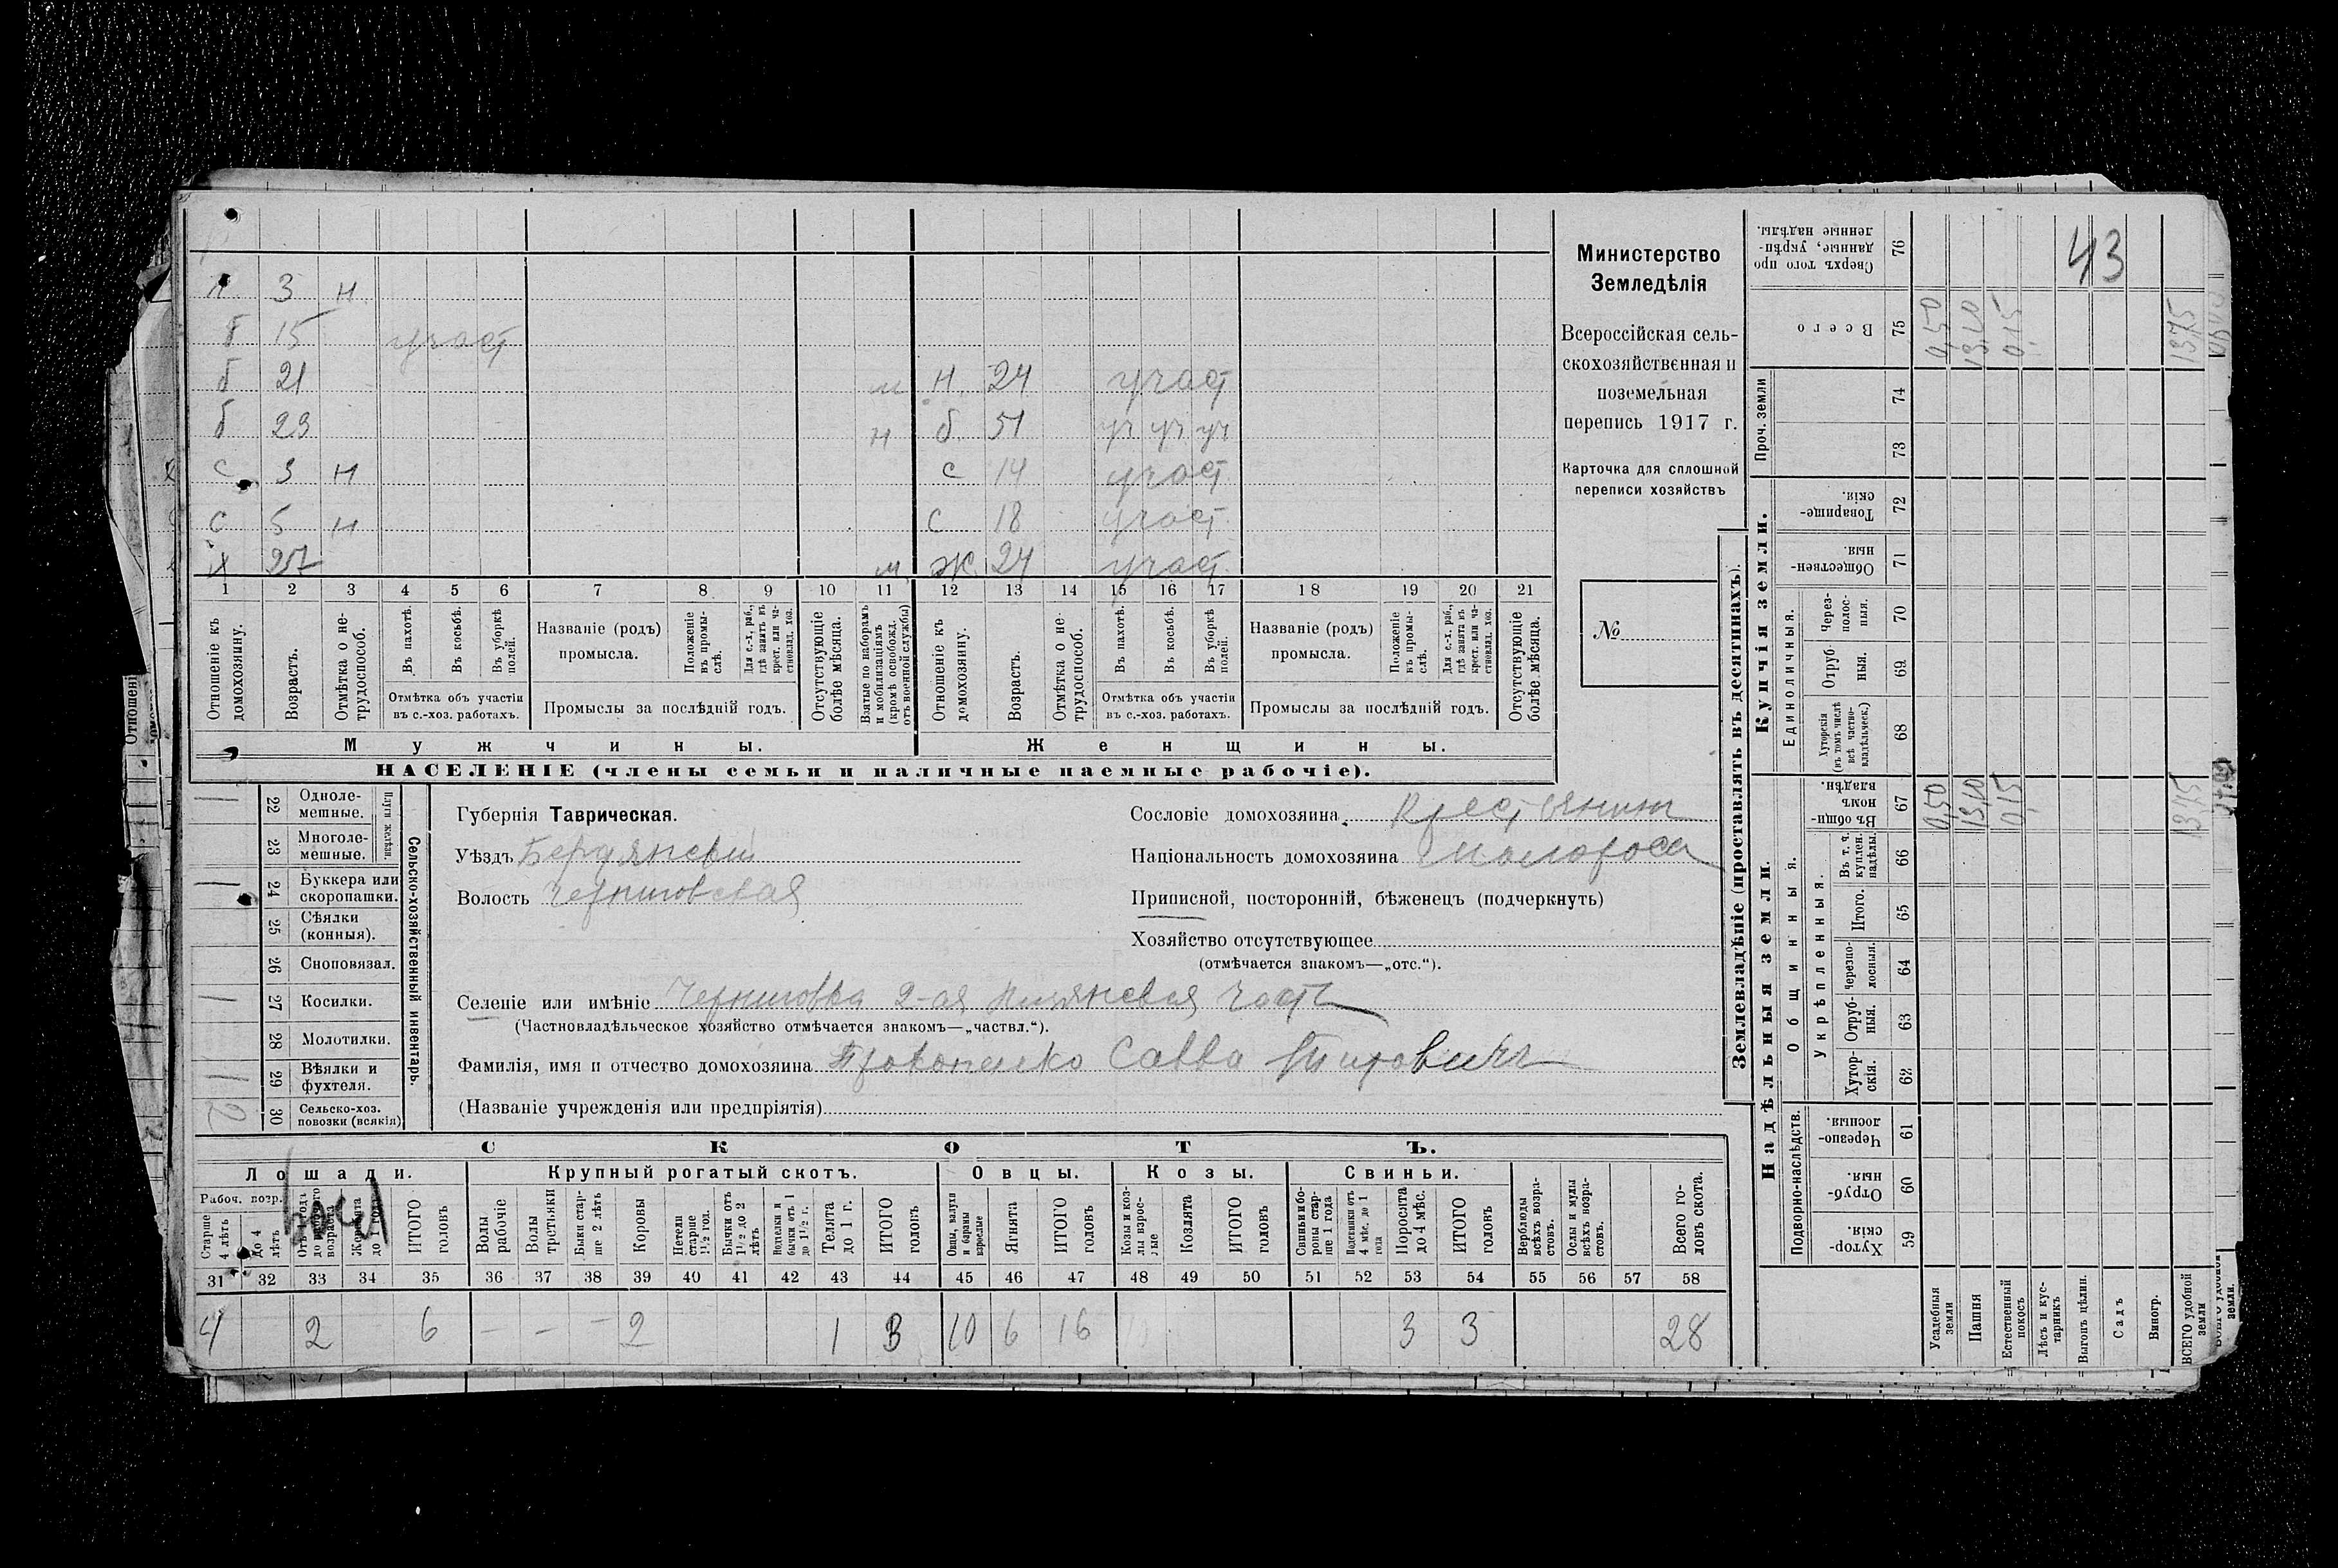 п 3 н
б 15 участ
б 21 м н 24 участ
б 23 н б 51 уч уч уч
с 3 н с 14 участ
с 5 н с 18 участ
х м ж 24 участ
1 2 3 4 5 6 7 8 9 10 11 12 13 14 15 16 17 18 19 20 21
Отношеніе къ домохозяину.
Возрастъ.
Отмѣтка о не-трудоспособ.
Въ пахотѣ.
Въ косьбѣ.
Въ уборкѣ полей.
Отмѣтка объ участіи въ с.-хоз. работахъ.
Названіе (родъ) промысла.
Положеніе въ промы-слѣ.
Для с.-х. раб., гдѣ занятъ въ крест. или ча-стновлад. хоз.
Промыслы за послѣдній годъ.
Отсутствующіе болѣе мѣсяца.
Взятые по наборамъ и мобилизаціямъ (кромѣ освобожд. отъ военной службы)
Отношеніе къ домохозяину.
Возрастъ.
Отмѣтка о не-трудоспособ.
Въ пахотѣ.
Въ косьбѣ.
Въ уборкѣ полей.
Отмѣтка объ участіи въ с.-хоз. работахъ.
Названіе (родъ) промысла.
Положеніе въ промы-слѣ.
Для с.-х. раб., гдѣ занята въ крест. или ча-стновлад. хоз.
Промыслы за послѣдній годъ.
Отсутствующіе болѣе мѣсяца.
Мужчины.
Женщины.
НАСЕЛЕНІЕ (члены семьи и наличные наемные рабочіе).
Министерство
Земледѣлія
Всероссійская сель-
скохозяйственная и
поземельная
перепись 1917 г.
Карточка для сплошной
переписи хозяйствъ
№
1 22 Одноле-мешные.
23 Многоле-мешные.
Плуги желѣзн.
1 24 Буккера или скоропашки.
25 Сѣялки (конныя).
26 Сноповязал.
1 27 Косилки.
28 Молотилки.
1 29 Вѣялки и фухтеля.
2 30 Сельско-хоз. повозки (всякія)
Сельско-хозяйственный инвентарь.
Губернія Таврическая.
Уѣздъ Бердянскій
Волость Черниговская
Сословіе домохозяина Крестьянин
Національность домохозяина малоросса
Приписной, посторонній, бѣженецъ (подчеркнуть)
Хозяйство отсутствующее
(отмѣчается знакомъ—„отс.“).
Селеніе или имѣніе Черниговка 2-ая часть
(Частновладѣльческое хозяйство отмѣчается знакомъ—„частвл.“).
Фамилія, имя и отчество домохозяина Прокопенко Савва Титовичъ
(Названіе учрежденія или предпріятія)
СКОТЪ.
Лошади.
Крупный рогатый скотъ.
Овцы.
Козы.
Свиньи.
Рабоч. возр.
Старше 4 лѣтъ
До 4 лѣтъ
Отъ 1 года до рабочаго возраста
Жеребята до 1 года
ИТОГО головъ
Волы рабочіе
Волы третьяки
Быки стар-ше 2 лѣтъ
Коровы
Нетели старше 1½ год.
Бычки отъ 1½ до 2 лѣтъ
Подтелки и бычки отъ 1 до 1½ г.
Телята до 1 г.
ИТОГО головъ
Овцы, валухи и бараны взрослые
Ягнята
ИТОГО головъ
Козы и коз-лы взрос-лые
Козлята
ИТОГО головъ
Свиньи и бо-ровы стар-ше 1 года
Подсвинки отъ 4 мѣс. до 1 года
Поросята до 4 мѣс.
ИТОГО головъ
Верблюды всѣхъ возра-стовъ.
Ослы и мулы всѣхъ возра-стовъ.
Всего го-ловъ скота.
31 32 33 34 35 36 37 38 39 40 41 42 43 44 45 46 47 48 49 50 51 52 53 54 55 56 57 58
4 2 6 – – – 2 1 3 10 6 16 3 3 28
Землевладѣніе (проставлять въ десятинахъ).
Надѣльныя земли.
Купчія земли.
Проч. земли
Подворно-наслѣдств.
Общинныя.
Укрѣпленныя.
Единоличныя.
Сверхъ того про данные, укрѣп-ленные надѣлы. 76
Всего 75
74
73
Товарище-скія. 72
Обществен-ныя. 71
Через-полос-ныя. 70
Отруб-ныя. 69
Хуторскія (въ томъ числѣ всѣ частно-владѣльческ.) 68
Въ общи-номъ владѣн. 67
Въ т. ч. куплен. надѣлы. 66
Итого. 65
Черезпо-лосныя. 64
Отруб-ныя. 63
Хутор-скія. 62
Черезпо-лосныя. 61
Отруб-ныя. 60
Хутор-скія. 59
Усадебныя земли
Пашня
Естественный покосъ
Лѣсъ и кус-тарникъ
Выгонъ цѣлин.
Садъ
Виногр.
ВСЕГО удобной земли
43
0,50
13,10
0,15
13,75
0,50
13,10
0,15
13,75